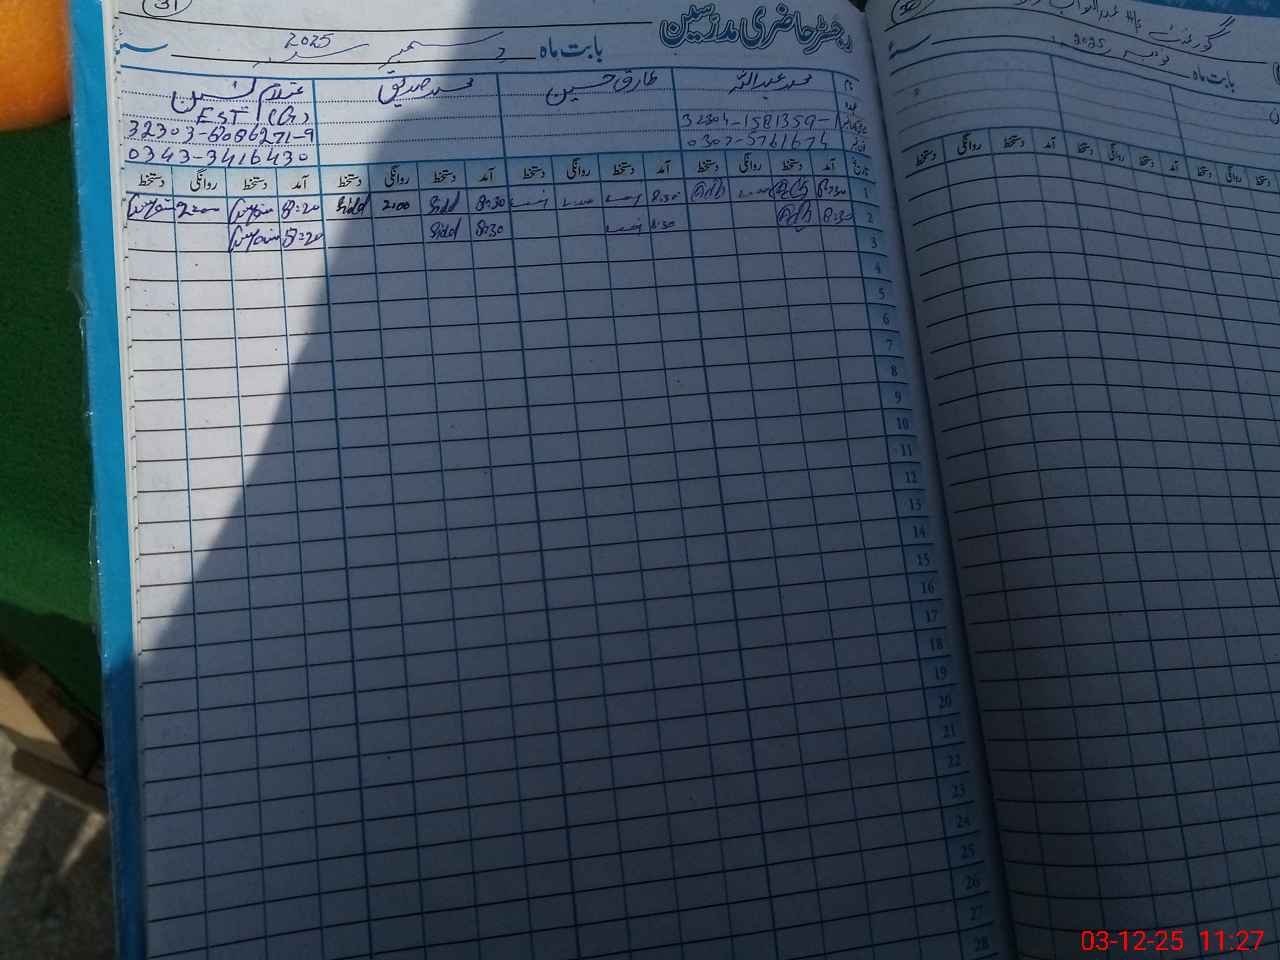 31
رجسٹر حاضری مدرسین
بابت ماہ دسمبر 2025
نام محمد عبداللہ طارق حسین محمد صدیق غلام یٰسین
EST (G)
32304-1581359-1 32303-6086271-9
0307-5761674 0343-3416430
تاریخ آمد دستخط روانگی دستخط آمد دستخط روانگی دستخط آمد دستخط روانگی دستخط آمد دستخط روانگی دستخط
1 8:30 8:30 8:30 Sidd 2:00 Sidd 8:20
2 8:30 8:30 8:30 Sidd 8:20
3
4
5
6
7
8
9
10
11
12
13
14
15
16
17
18
19
20
21
22
23
24
25
26
27
28
گورنمنٹ
بابت ماہ نومبر 2025
آمد دستخط روانگی دستخط آمد دستخط روانگی دستخط
03-12-25 11:27